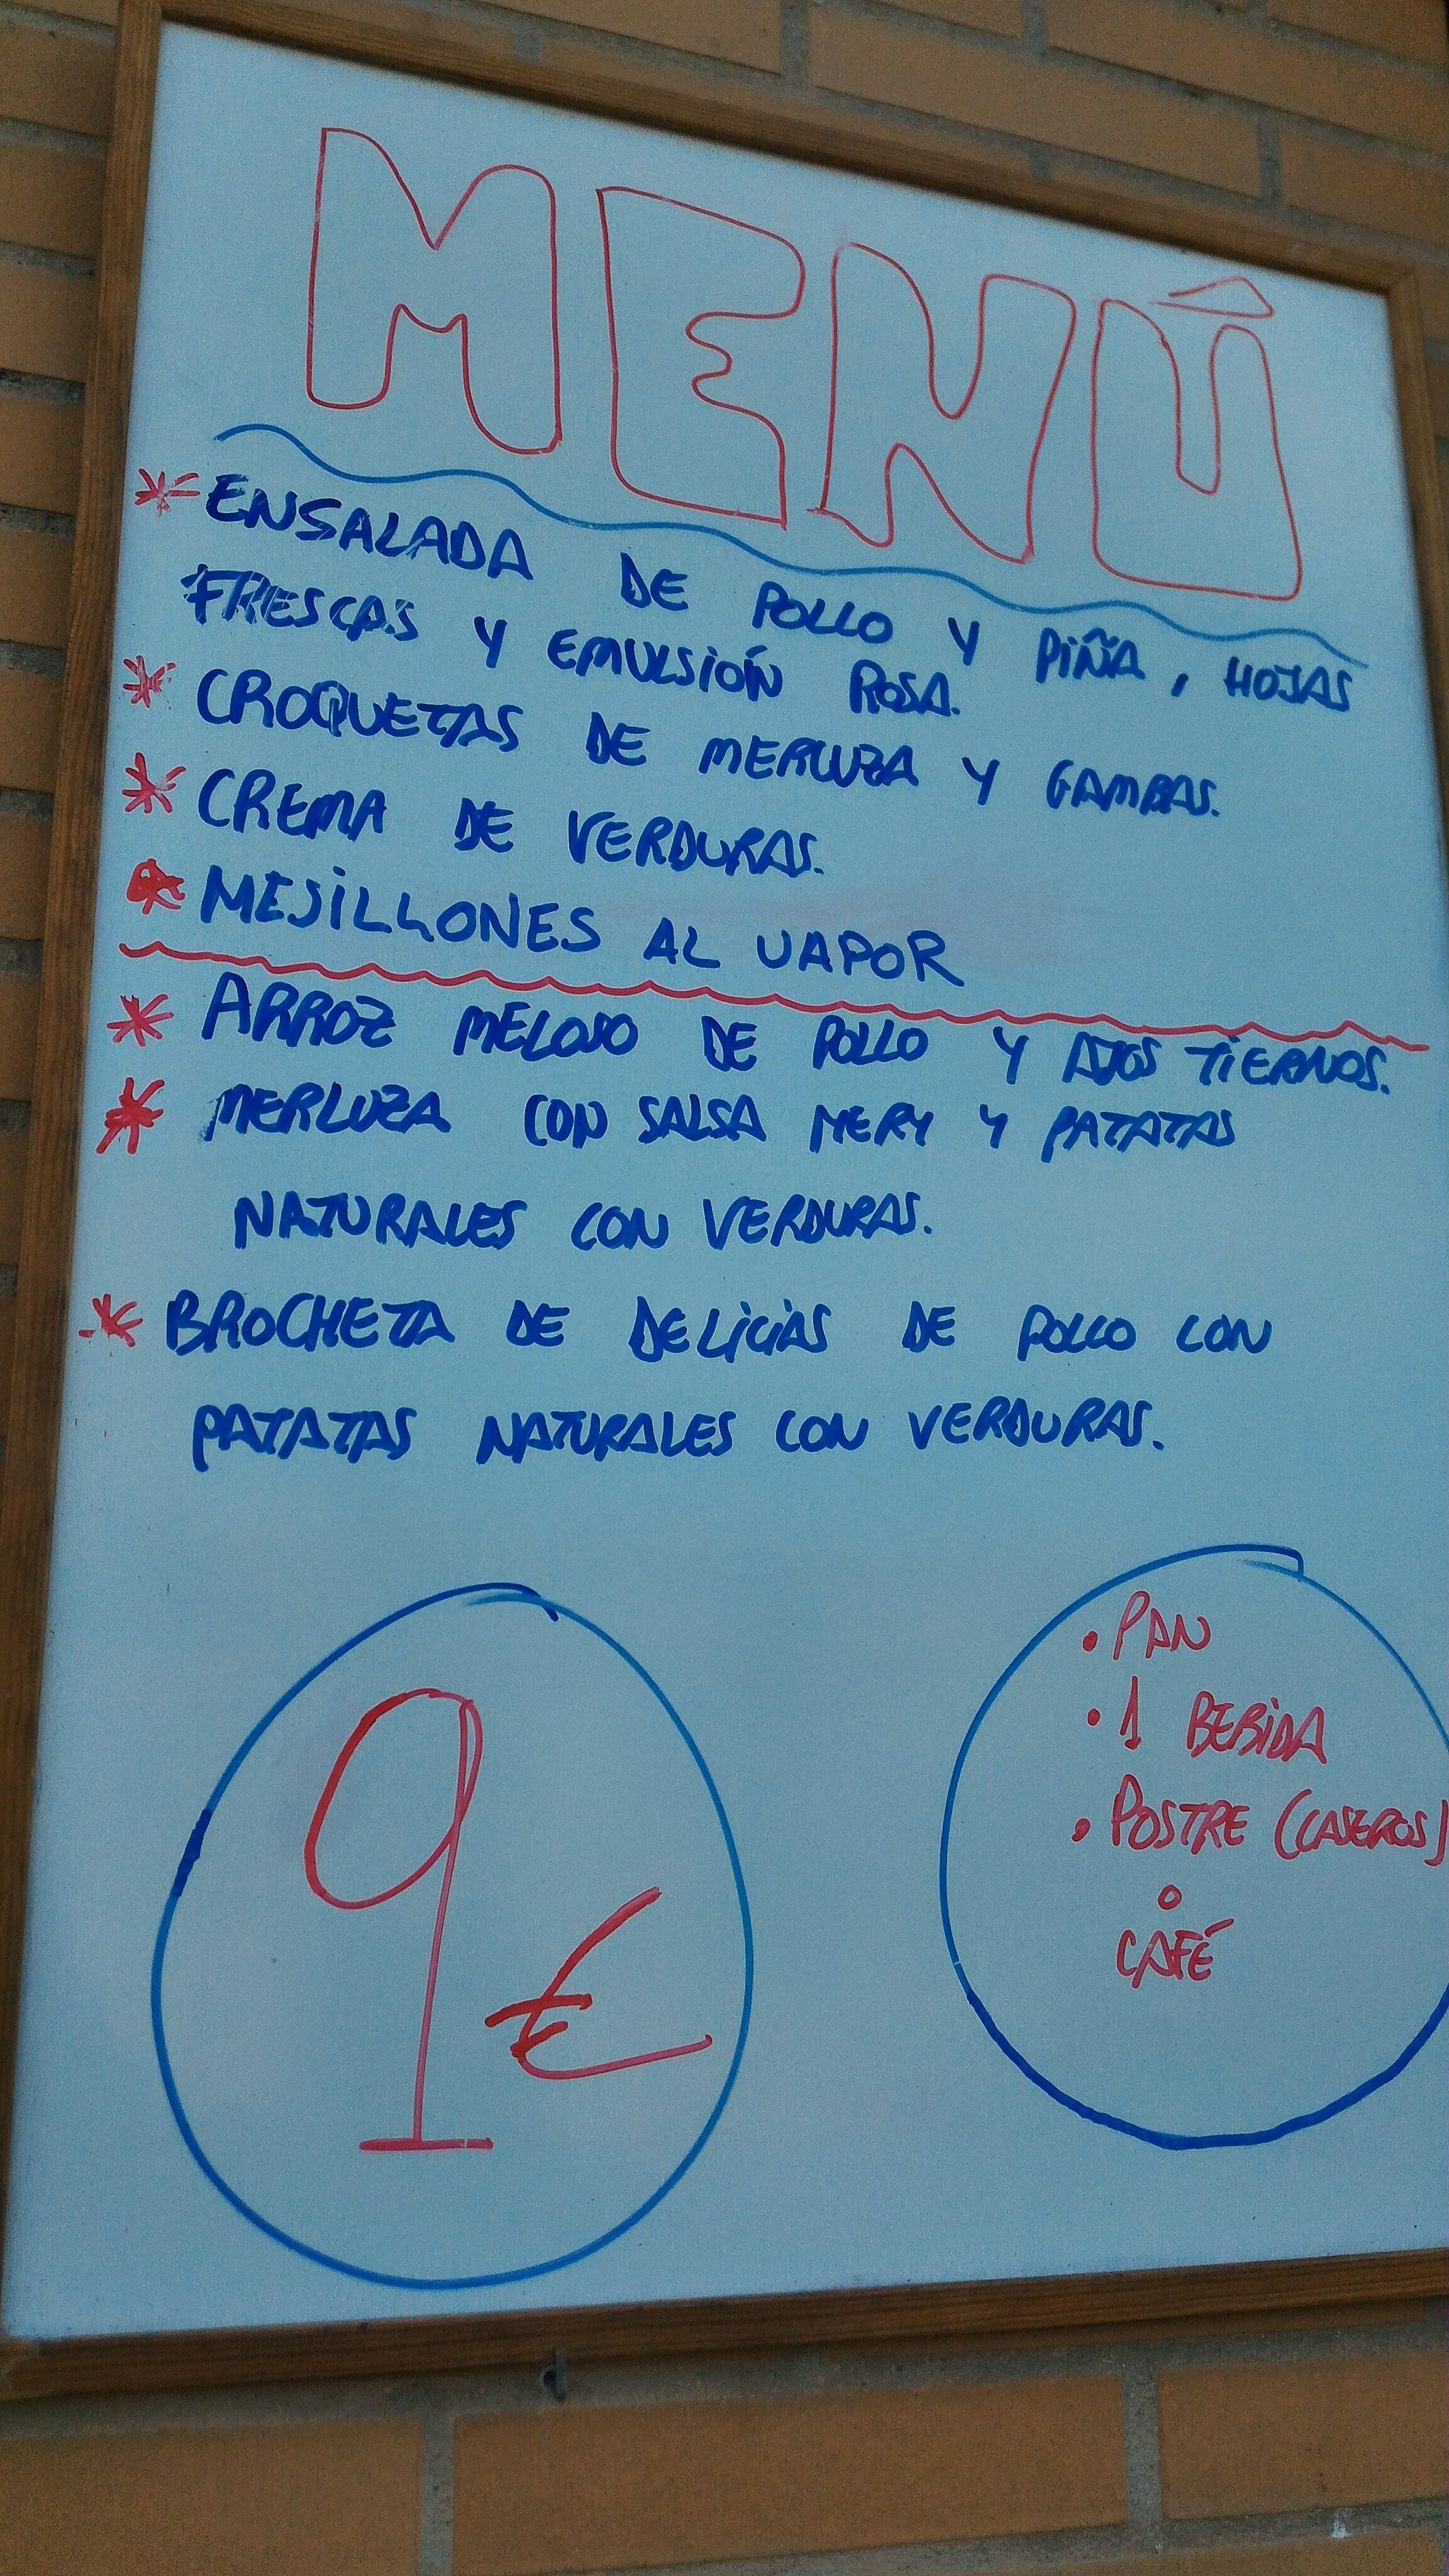 MENÚ
* ENSALADA DE POLLO Y PIÑA, HOJAS
FRESCAS Y EMULSIÓN ROSA.
* CROQUETAS DE MERLUZA Y GAMBAS.
* CREMA DE VERDURAS.
* MEJILLONES AL VAPOR
* ARROZ MELOSO DE POLLO Y AJOS TIERNOS.
* MERLUZA CON SALSA MERY Y PATATAS
NATURALES CON VERDURAS.
* BROCHETA DE DELICIAS DE POLLO CON
PATATAS NATURALES CON VERDURAS.
9 €
• PAN
• 1 BEBIDA
• POSTRE (CASEROS)
o
CAFÉ